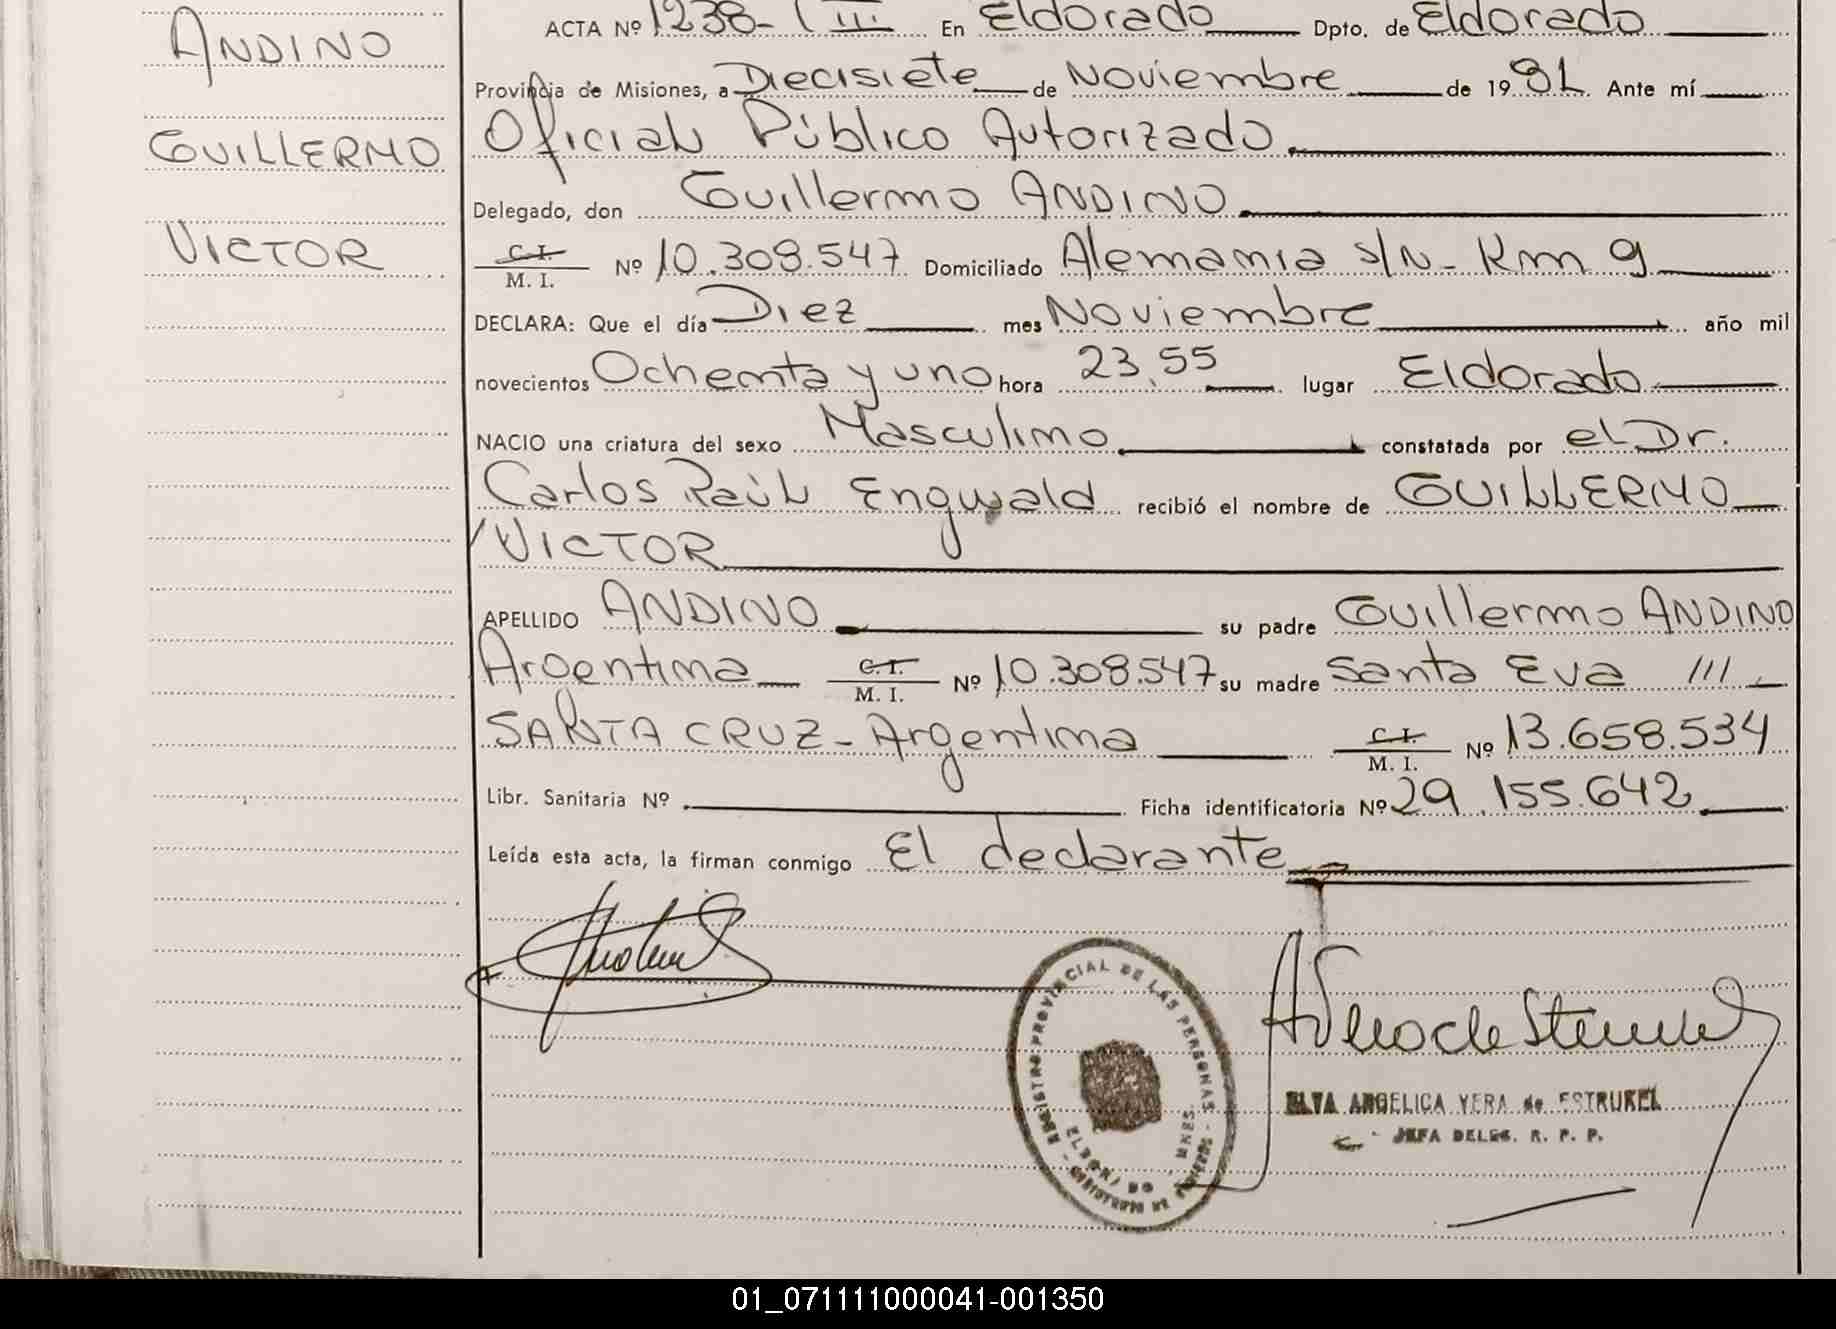 ANDINO
GUILLERMO
VICTOR
ACTA Nº 1238- III En Eldorado Dpto. de Eldorado
Provincia de Misiones, a Diecisiete de Noviembre de 1981 Ante mí
Oficial Público Autorizado
Delegado, don Guillermo ANDINO
C.I. M. I. Nº 10.308.547 Domiciliado Alemania s/N- Km 9
DECLARA: Que el día Diez mes Noviembre año mil
novecientos Ochenta y uno hora 23,55 lugar Eldorado
NACIO una criatura del sexo Masculino constatada por el Dr.
Carlos Raúl Engwald recibió el nombre de GUILLERMO
/VICTOR
APELLIDO ANDINO su padre Guillermo ANDINO
Argentina C.I. M. I. Nº 10.308.547 su madre Santa Eva ///
SANTA CRUZ- Argentina C.I. M. I. Nº 13.658.534
Libr. Sanitaria Nº Ficha identificatoria Nº 29.155.642
Leída esta acta, la firman conmigo El declarante
REGISTRO PROVINCIAL DE LAS PERSONAS
MNES.
ELVA ANGELICA VERA de ESTRUKEL
JEFA DELEG. R. P. P.
01_071111000041-001350